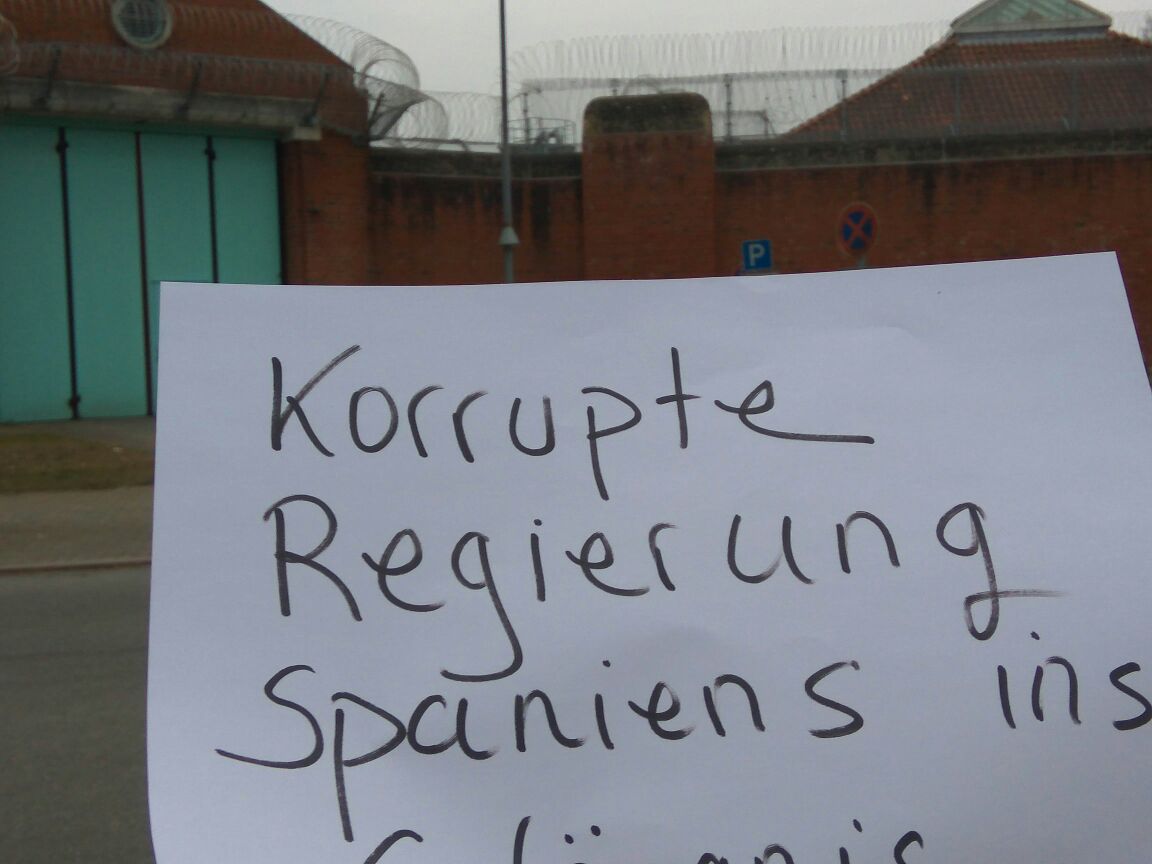 P
Korrupte
Regierung
Spaniens ins